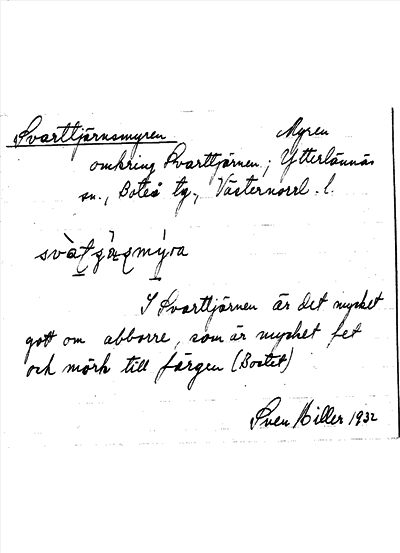 Svarttjärnsmyren Myren
omkring Svarttjärnen; Ytterlännäs
sn., Boteå tg., Västernorrl. l.
I Svarttjärnen är det mycket
gott om abborre, som är mycket fet
och mörk till färgen (Bostet)
Sven Miller 1932